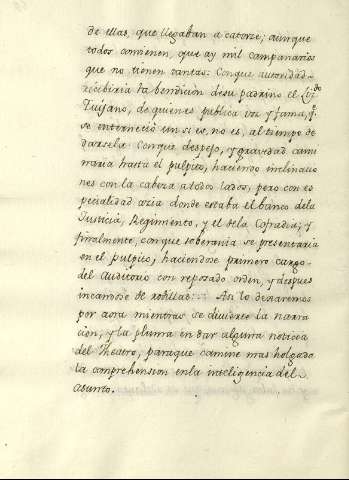 de ellas, que llegaban a catorze; aunque
todos convienen, que ay mil campanarios
que no tienen tantas: Conque autoridad
recibiria la bendicion desu padrino el Lizdo
Quijano, de quien es publica voz y fama, q.e
se enterneció un si es, no es, al tiempo de
darsela: Conque despejo, y gravedad cami
naria hasta el pulpito, haciendo inclinacio
nes con la cabeza atodos lados, pero con es
pecialidad azia donde estaba el banco dela
Justicia, Regimiento, y el dela Cofradia; y
finalmente, con que soberania se presentaria
en el pulpito, haciendose primero cargo
del Auditorio con reposado orden, y despues
incandose de rodillas:::. Asi lo dexaremos
por aora mientras se divierte la narra
cion, y la pluma en dar alguna noticia
del Theatro, paraque camine mas holgada
la comprehension enla inteligencia del
asunto.